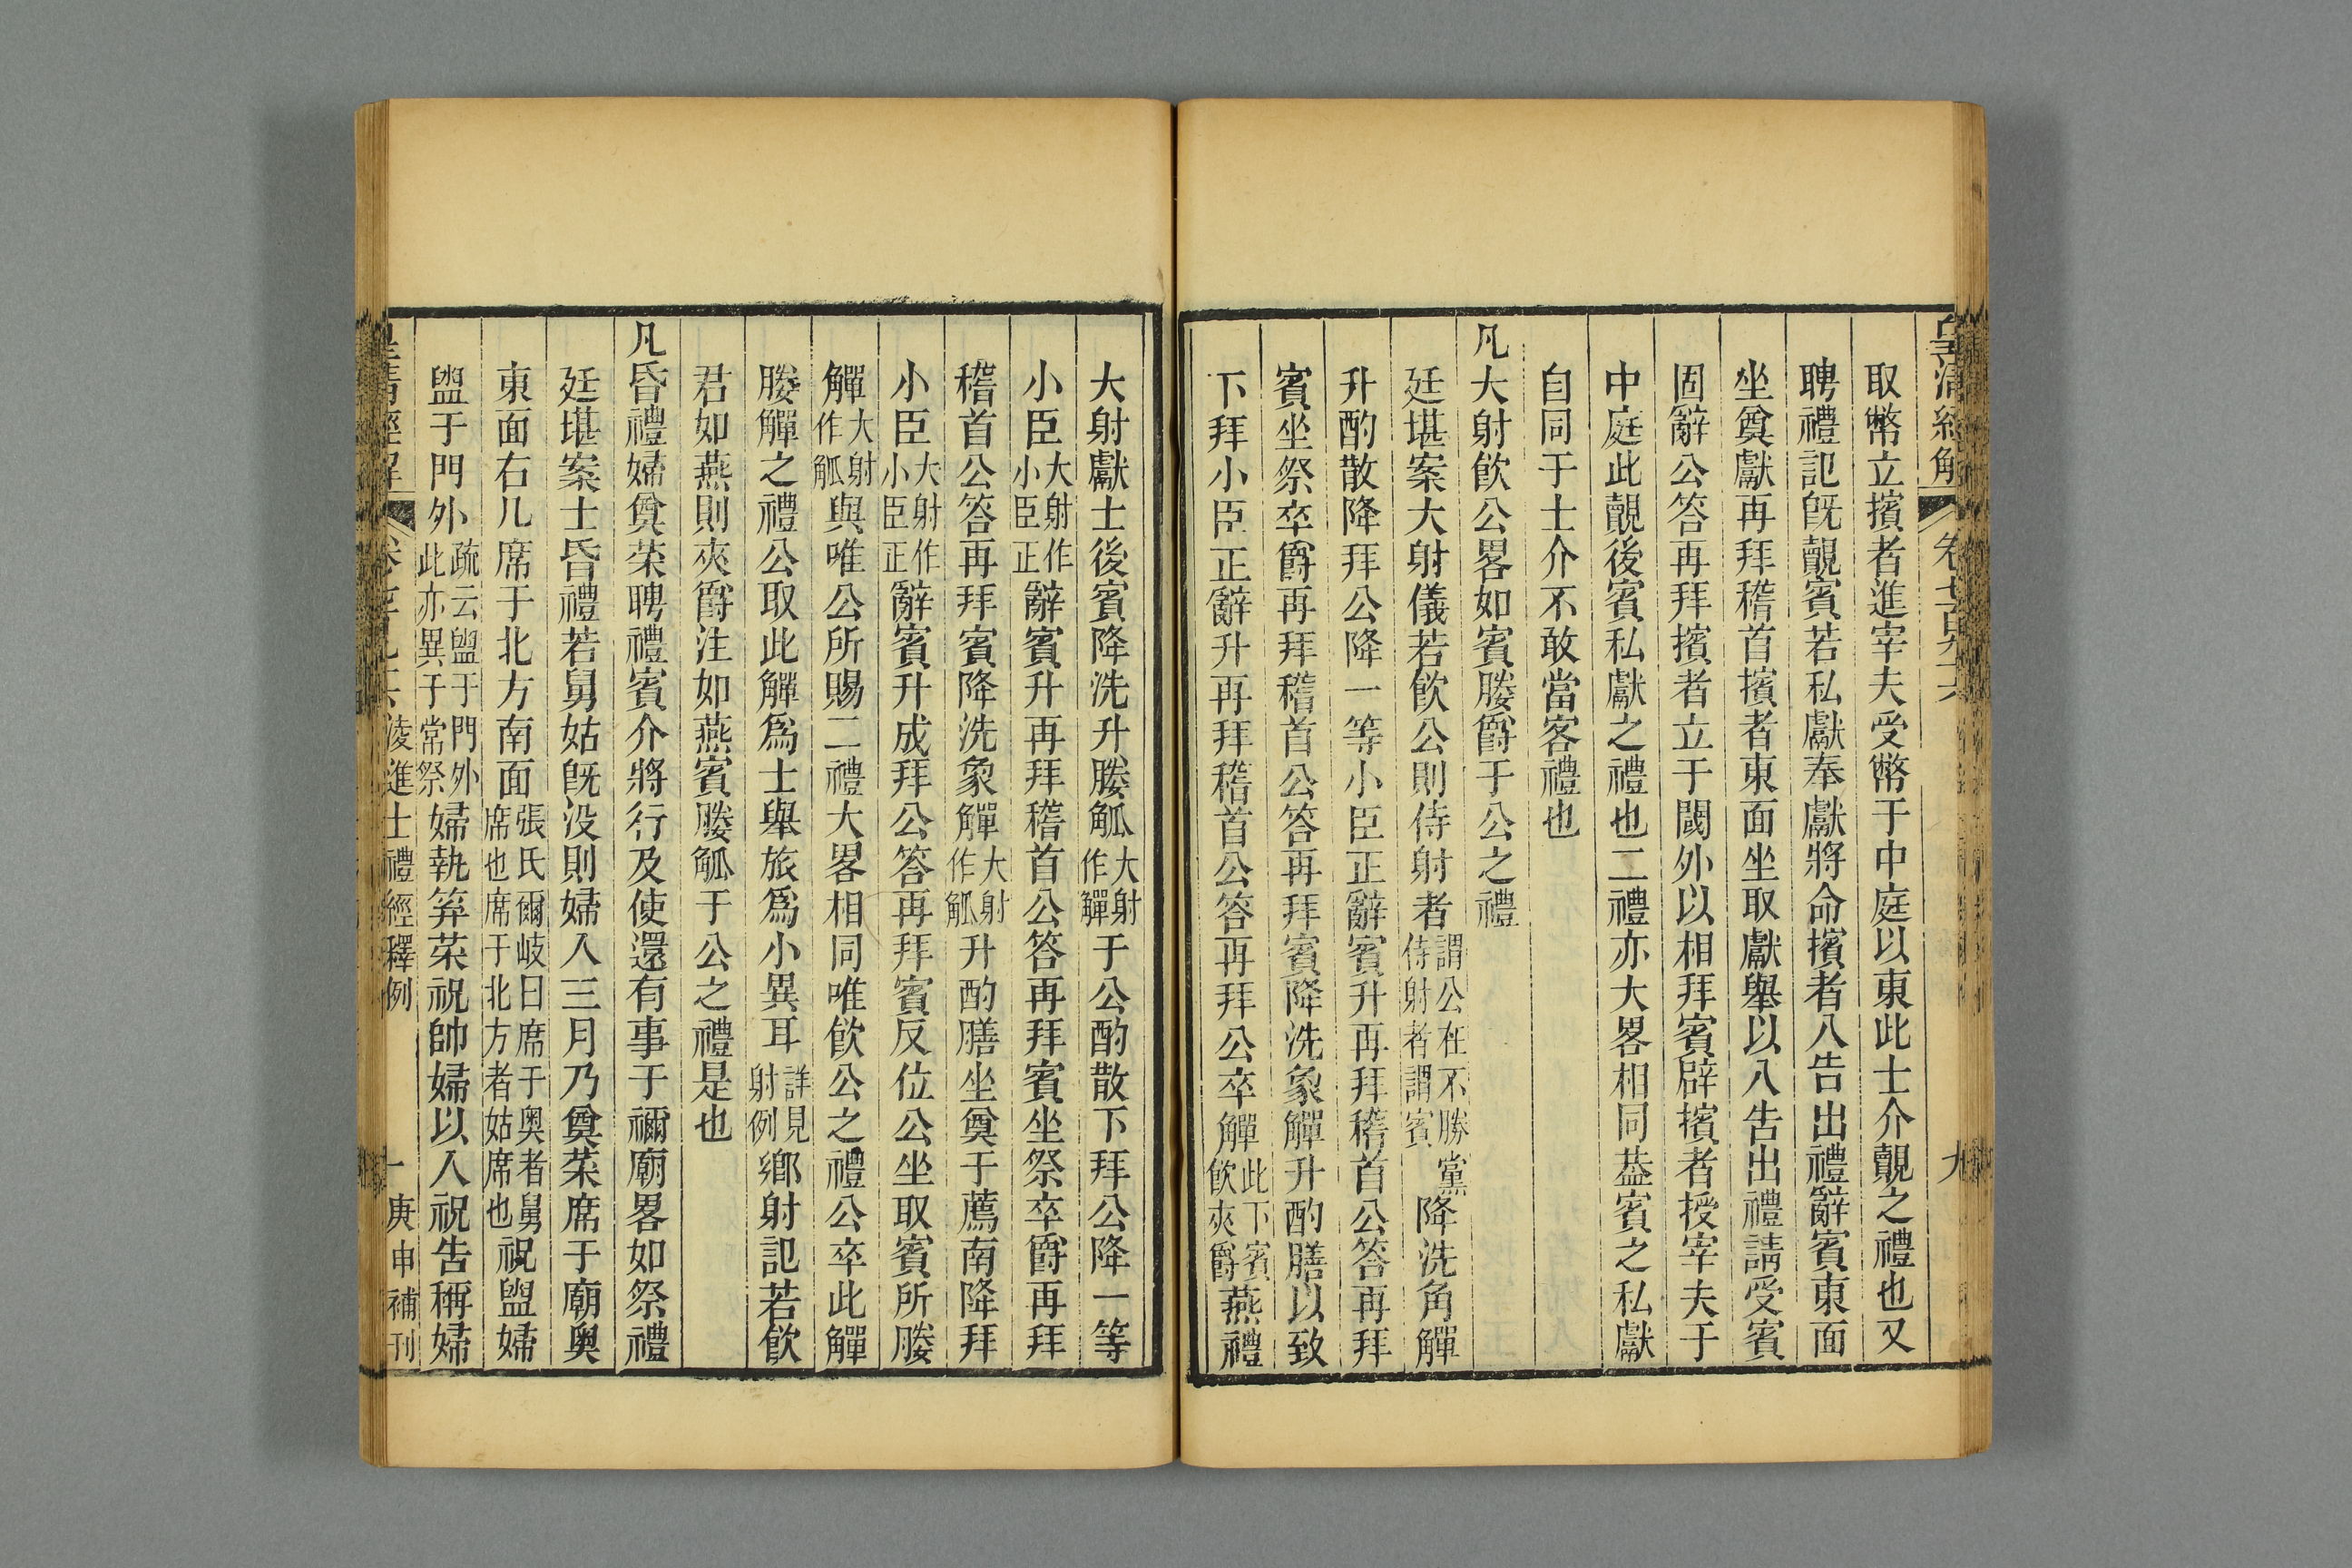 皇清經解 卷七百九十六 九
取幣立擯者進宰夫受幣于中庭以東此士介覿之禮也又
聘禮記旣覿賓若私獻奉獻將命擯者入告出禮辭賓東面
坐奠獻再拜稽首擯者東面坐取獻舉以入告出禮請受賓
固辭公答再拜擯者立于閾外以相拜賓辟擯者授宰夫于
中庭此覿後賓私獻之禮也二禮亦大畧相同葢賓之私獻
自同于士介不敢當客禮也
凡大射飮公畧如賓媵爵于公之禮
廷堪案大射儀若飮公則侍射者謂公在不勝黨侍射者謂賓降洗角觶
升酌散降拜公降一等小臣正辭賓升再拜稽首公答再拜
賓坐祭卒爵再拜稽首公答再拜賓降洗象觶升酌膳以致
下拜小臣正辭升再拜稽首公答再拜公卒觶此下賓飮夾爵燕禮
大射獻士後賓降洗升媵觚大射作觶于公酌散下拜公降一等
小臣大射作小臣正辭賓升再拜稽首公答再拜賓坐祭卒爵再拜
稽首公答再拜賓降洗象觶大射作觚升酌膳坐奠于薦南降拜
小臣大射作小臣正辭賓升成拜公答再拜賓反位公坐取賓所媵
觶大射作觚與唯公所賜二禮大畧相同唯飮公之禮公卒此觶
媵觶之禮公取此觶爲士舉旅爲小異耳詳見射例鄉射記若飮
君如燕則夾爵注如燕賓媵觚于公之禮是也
凡昏禮婦奠菜聘禮賓介將行及使還有事于禰廟畧如祭禮
廷堪案士昏禮若舅姑旣沒則婦入三月乃奠菜席于廟奧
東面右几席于北方南面張氏爾岐曰席于奧者舅席也席于北方者姑席也祝盥婦
盥于門外疏云盥于門外此亦異于常祭婦執笲菜祝帥婦以入祝告稱婦
皇清經解 淩進士禮經釋例 庚申補刊